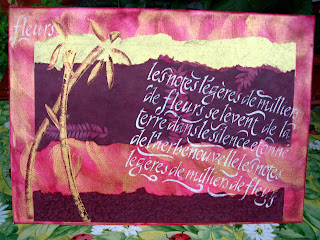 fleurs
les notes légères de milliers
de fleurs se lèvent de la
terre dans le silence étonné
de l'herbe nouvelle les notes
légères de milliers de fleurs